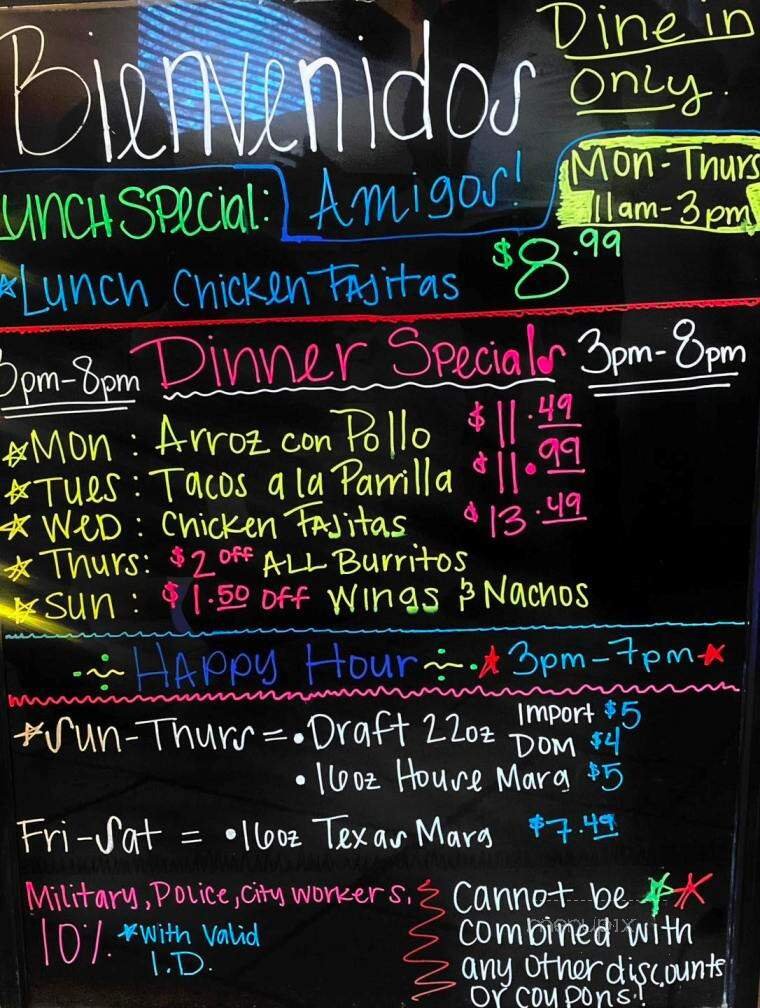 Dine in
only.
Bienvenidos
Amigos!
Mon-Thurs
11am-3pm
LUNCH SPECIAL:
*Lunch Chicken Fajitas $8.99
3pm-8pm Dinner Specials 3pm-8pm
*Mon: Arroz con Pollo $11.49
*Tues: Tacos a la Parrilla $11.99
*Wed: Chicken Fajitas $13.49
*Thurs: $2 off ALL Burritos
*Sun: $1.50 off Wings & Nachos
Happy Hour *3pm-7pm*
*Sun-Thurs = •Draft 22oz Import $5
DOM $4
•16oz House Marg $5
Fri-Sat = •16oz Texas Marg $7.49
Military, Police, City workers.
10% *with Valid
I.D.
Cannot be **
combined with
any other discounts
or coupons!
menupix